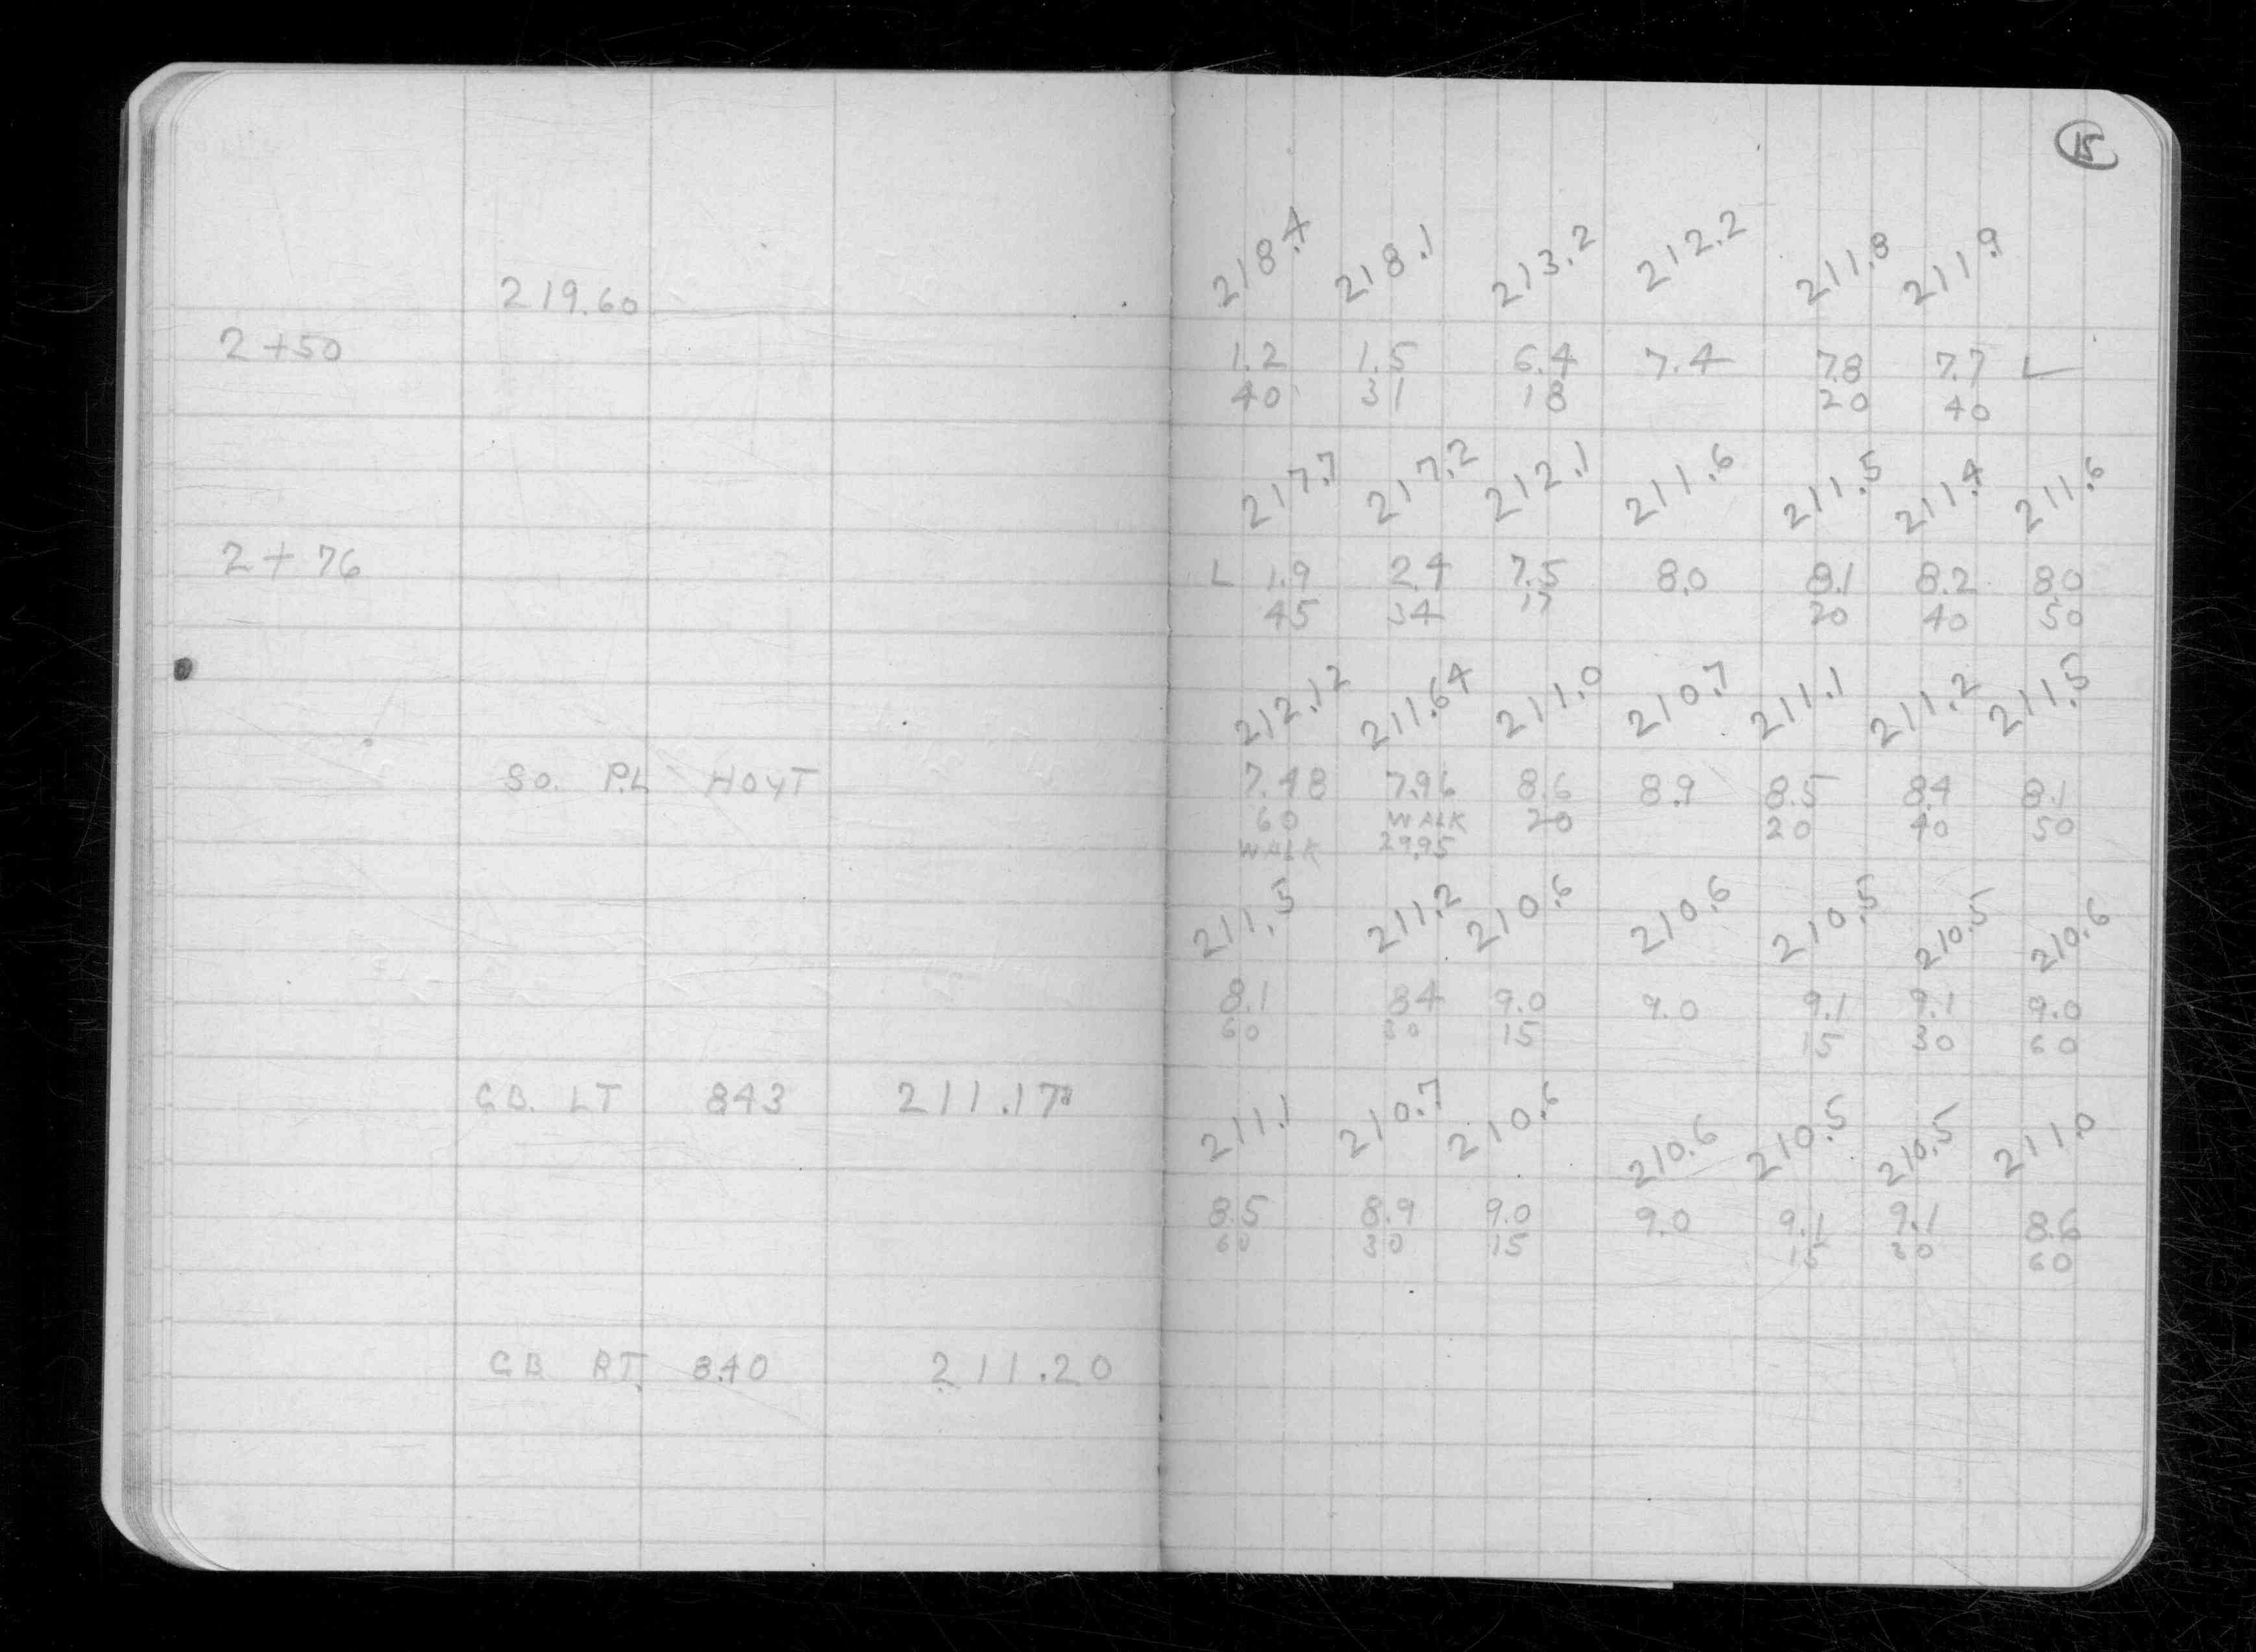 15
219.60
218.4 218.1 213.2 212.2 211.8 211.9
2+50
1.2 1.5 6.4 7.4 7.8 7.7 L
40 31 18 20 40
217.7 217.2 212.1 211.6 211.5 211.4 211.6
2+76
L 1.9 2.4 7.5 8.0 8.1 8.2 8.0
45 34 17 20 40 50
212.12 211.64 211.0 210.7 211.1 211.2 211.5
SO. P.L HOYT
7.48 7.96 8.6 8.9 8.5 8.4 8.1
60 WALK 20 20 40 50
WALK 29.95
211.5 211.2 210.6 210.6 210.5 210.5 210.6
8.1 8.4 9.0 9.0 9.1 9.1 9.0
60 30 15 15 30 60
G.B. LT 843 211.17
211.1 210.7 210.6 210.6 210.5 210.5 211.0
8.5 8.9 9.0 9.0 9.1 9.1 8.6
60 30 15 15 30 60
GB RT. 8.40 211.20